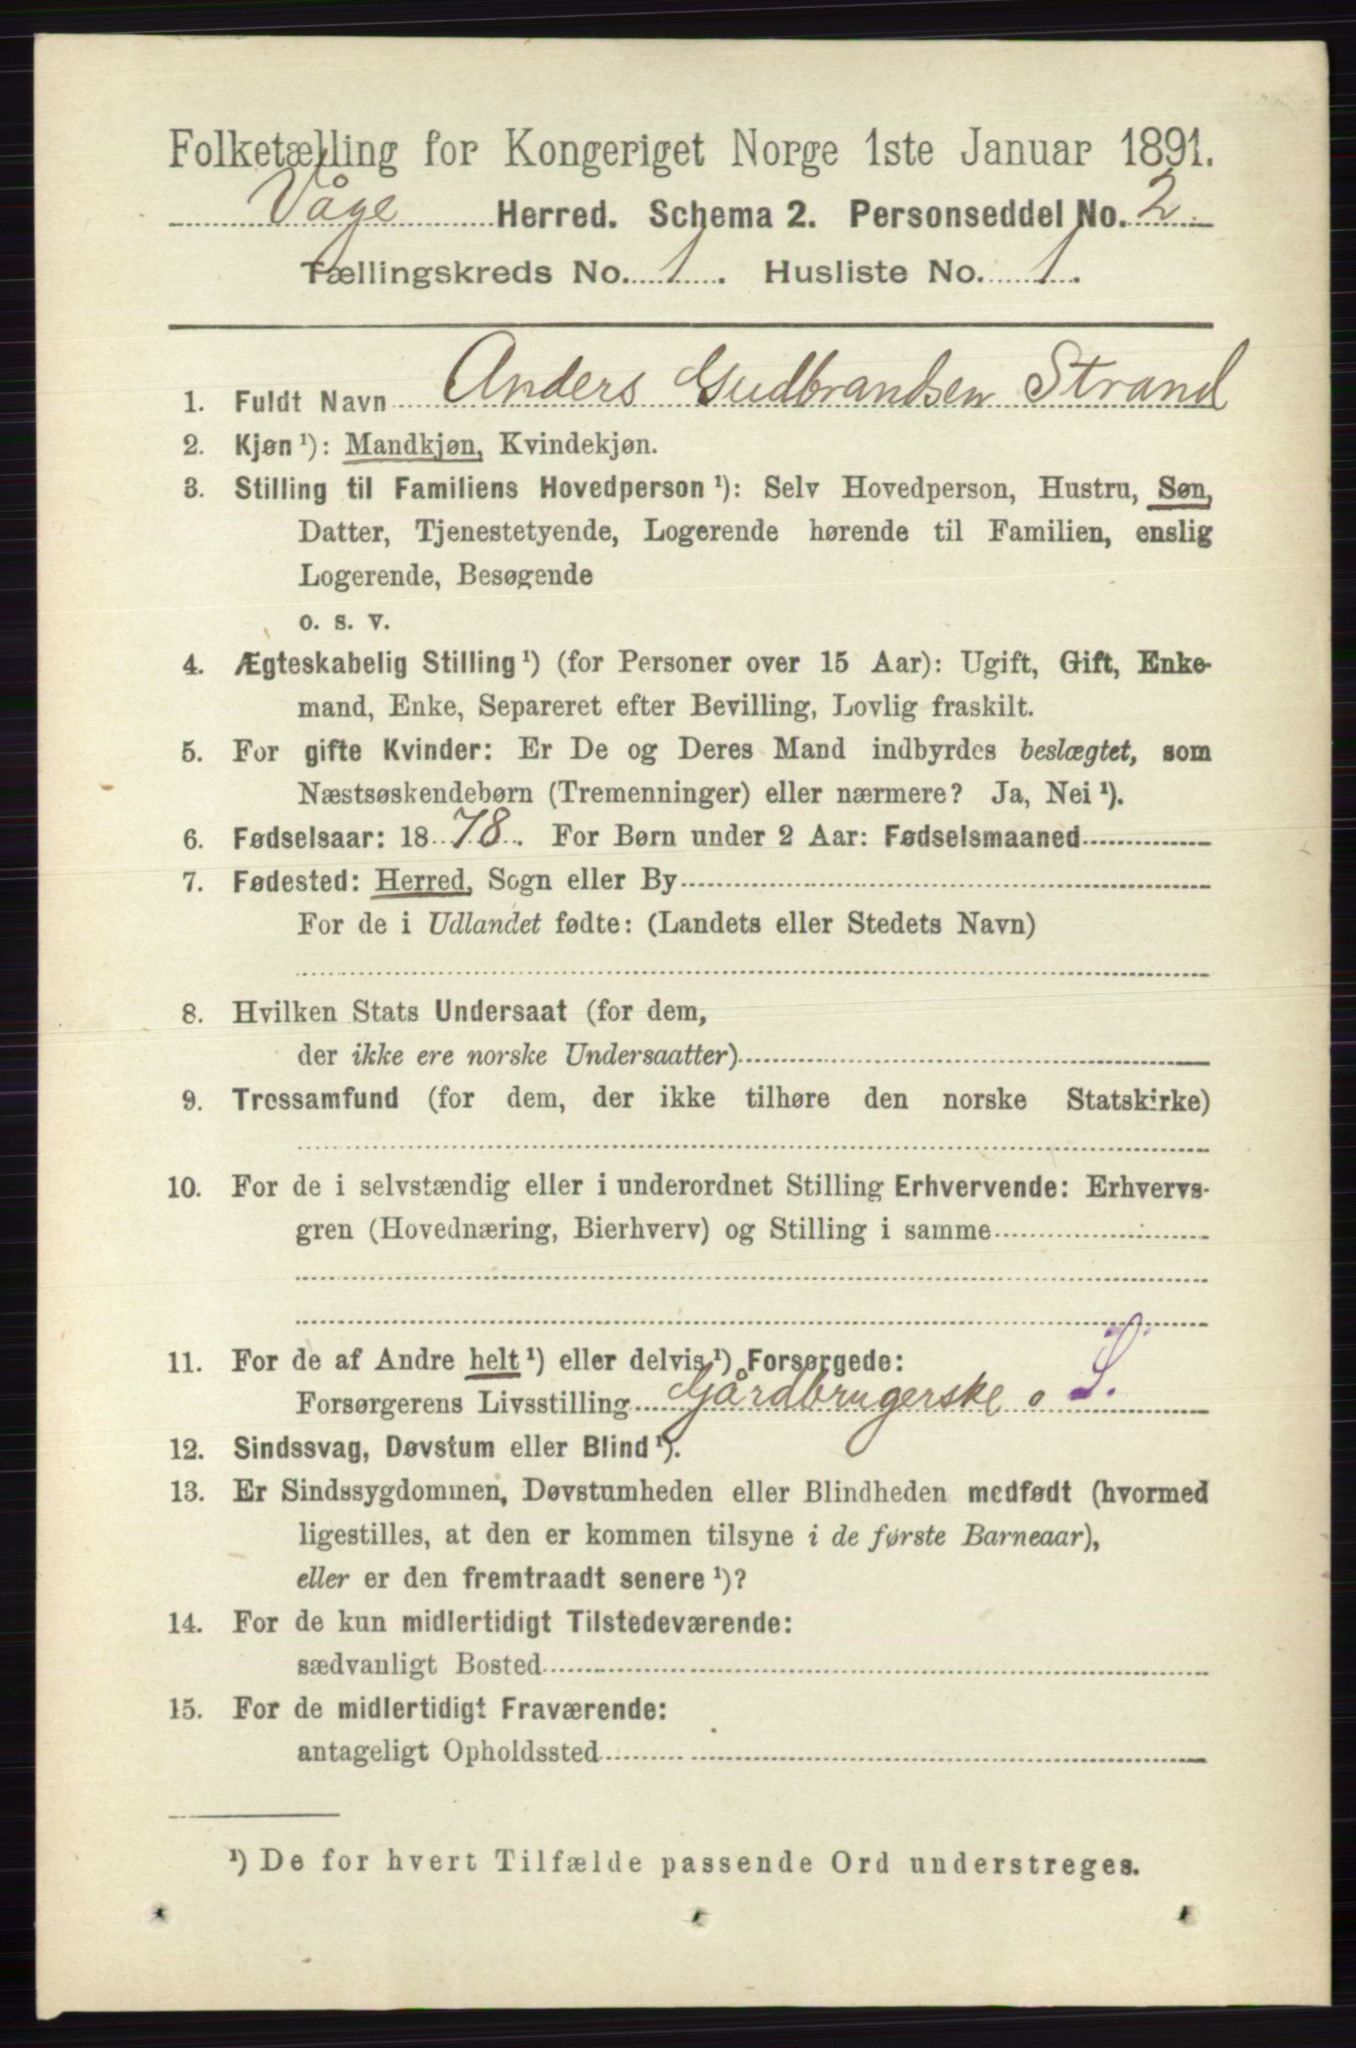 Folketælling for Kongeriget Norge 1ste Januar 1891.
Våge Herred. Schema 2. Personseddel No. 2.
Tællingskreds No. 1. Husliste No. 1.
1. Fuldt Navn Anders Gudbrandsen Strand
2. Kjøn ¹): Mandkjøn, Kvindekjøn.
3. Stilling til Familiens Hovedperson ¹): Selv Hovedperson, Hustru, Søn,
Datter, Tjenestetyende, Logerende hørende til Familien, enslig
Logerende, Besøgende
o. s. v.
4. Ægteskabelig Stilling ¹) (for Personer over 15 Aar): Ugift, Gift, Enke-
mand, Enke, Separeret efter Bevilling, Lovlig fraskilt.
5. For gifte Kvinder: Er De og Deres Mand indbyrdes beslægtet, som
Næstsøskendebørn (Tremenninger) eller nærmere? Ja, Nei ¹).
6. Fødselsaar: 1878. For Børn under 2 Aar: Fødselsmaaned
7. Fødested: Herred, Sogn eller By
For de i Udlandet fødte: (Landets eller Stedets Navn)
8. Hvilken Stats Undersaat (for dem,
der ikke ere norske Undersaatter)
9. Trossamfund (for dem, der ikke tilhøre den norske Statskirke)
10. For de i selvstændig eller i underordnet Stilling Erhvervende: Erhvervs-
gren (Hovednæring, Bierhverv) og Stilling i samme
11. For de af Andre helt ¹) eller delvis ¹) Forsørgede:
Forsørgerens Livsstilling Gårdbrugerske o S.
12. Sindssvag, Døvstum eller Blind ¹).
13. Er Sindssygdommen, Døvstumheden eller Blindheden medfødt (hvormed
ligestilles, at den er kommen tilsyne i de første Barneaar),
eller er den fremtraadt senere ¹)?
14. For de kun midlertidigt Tilstedeværende:
sædvanligt Bosted
15. For de midlertidigt Fraværende:
antageligt Opholdssted
¹) De for hvert Tilfælde passende Ord understreges.